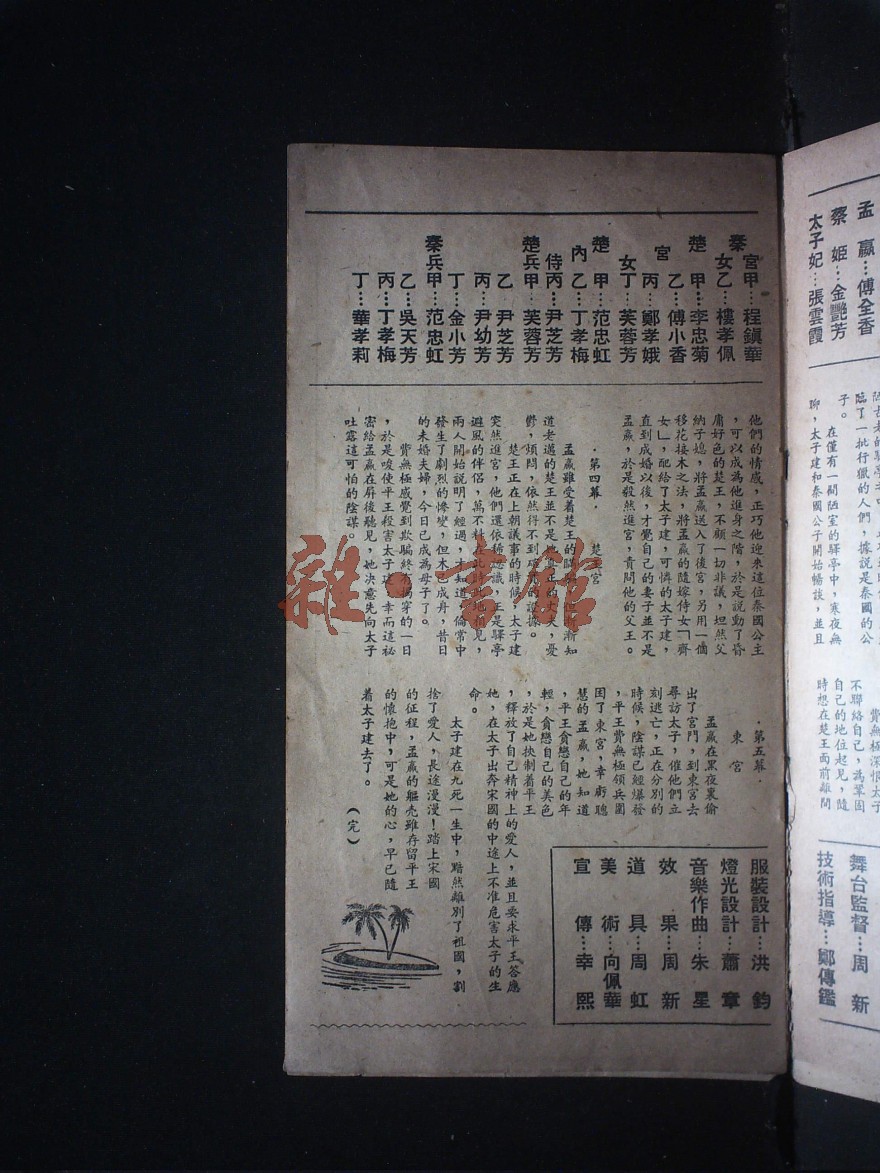 孟嬴…傅全香
蔡姬…金艷芳
太子妃…張雲霞
臨了一批行獵的人們，據說是秦國的公
子。
在僅有一間陋室的驛亭中，寒夜無
聊，太子建和秦國公子開始暢談，並且
費無極深恨太子
不聯絡自己，為鞏固
自己的地位起見，隨
時想在楚王面前離間
舞台監督…周新
技術指導…鄭傳鑑
秦宮女甲…程鎭華
乙…樓孝佩
楚宮女甲…李忠菊
乙…傅小香
丙…鄭孝娥
丁…芙蓉芳
楚內侍甲…范忠虹
乙…丁孝梅
丙…尹芝芳
楚兵甲…芙蓉芳
乙…尹芝芳
丙…尹幼芳
丁…金小芳
秦兵甲…范忠虹
乙…吳天芳
丙…丁孝梅
丁…華孝莉
他們的情感，正巧他迎來這位秦國公主
，可以成為他進身之階，於是說動了昏
庸好色的楚王，不顧一切非議，坦然父
納子媳，將孟嬴送入了後宮，另用一個
移花接木之法，將孟嬴的隨嫁侍女「齊
女」，配給了太子建，可憐的太子建，
直到成婚以後，才覺自己的妻子並不是
孟嬴，於是毅然進宮，責問他的父王。
·第四幕· 楚王宮
孟嬴雖受着楚王的
道老邁的楚王並不是她真正的丈夫，憂
鬱，煩悶，依然得不到的證據。
楚王正在上朝議事的時候，太子建
突然進宮，他們還依稀認識，王是驛亭
避風的伴侶，萬不料在此時此地相見，
兩人開始說明了經過，才知道倫常中
發生了劇烈的慘變，但木已成舟，昔日
的未婚夫婦，今日已成為母子了。
費無極感覺到欺騙終有揭穿的一日
，於是唆使平王殺害太子建，幸而這祕
密給孟嬴在屏後聽見，她決意先向太子
吐露這可怕的陰謀。
·第五幕·
東宮
孟嬴在黑夜裏偷
出了宮門，到東宮去
尋訪太子，催他們立
刻逃亡，正在分別的
時候，陰謀已經爆發
，平王費無極領兵圍
困了東宮，幸虧聰
慧的孟嬴，她知道
，平王貪戀自己的年
輕，貪戀自己的美色
，於是她挾制着平王
，釋放了自己精神上的愛人，並且要求平王答應
她，在太子出奔宋國的中途上不准危害太子的生
命。
太子建在九死一生中，黯然離別了祖國，割
捨了愛人，長途漫漫！踏上宋國
的征程，孟嬴的軀壳雖存留平王
的懷抱中，可是她的心，早已隨
着太子建去了。
（完）
服裝設計…洪鈞
燈光設計…蕭章
音樂作曲…朱星
效果…周新
道具…周虹
美術…向佩華
宣傳…幸熙
雜·書館